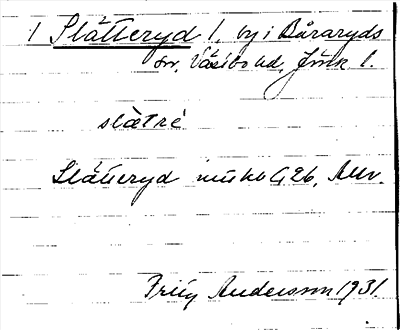 1 Slätteryd 1, by i Båraryds
sn, Västbo hd, Jönk l.
slàtré
Slätteryd G 26, Allm.
Frity Andersson 1931.